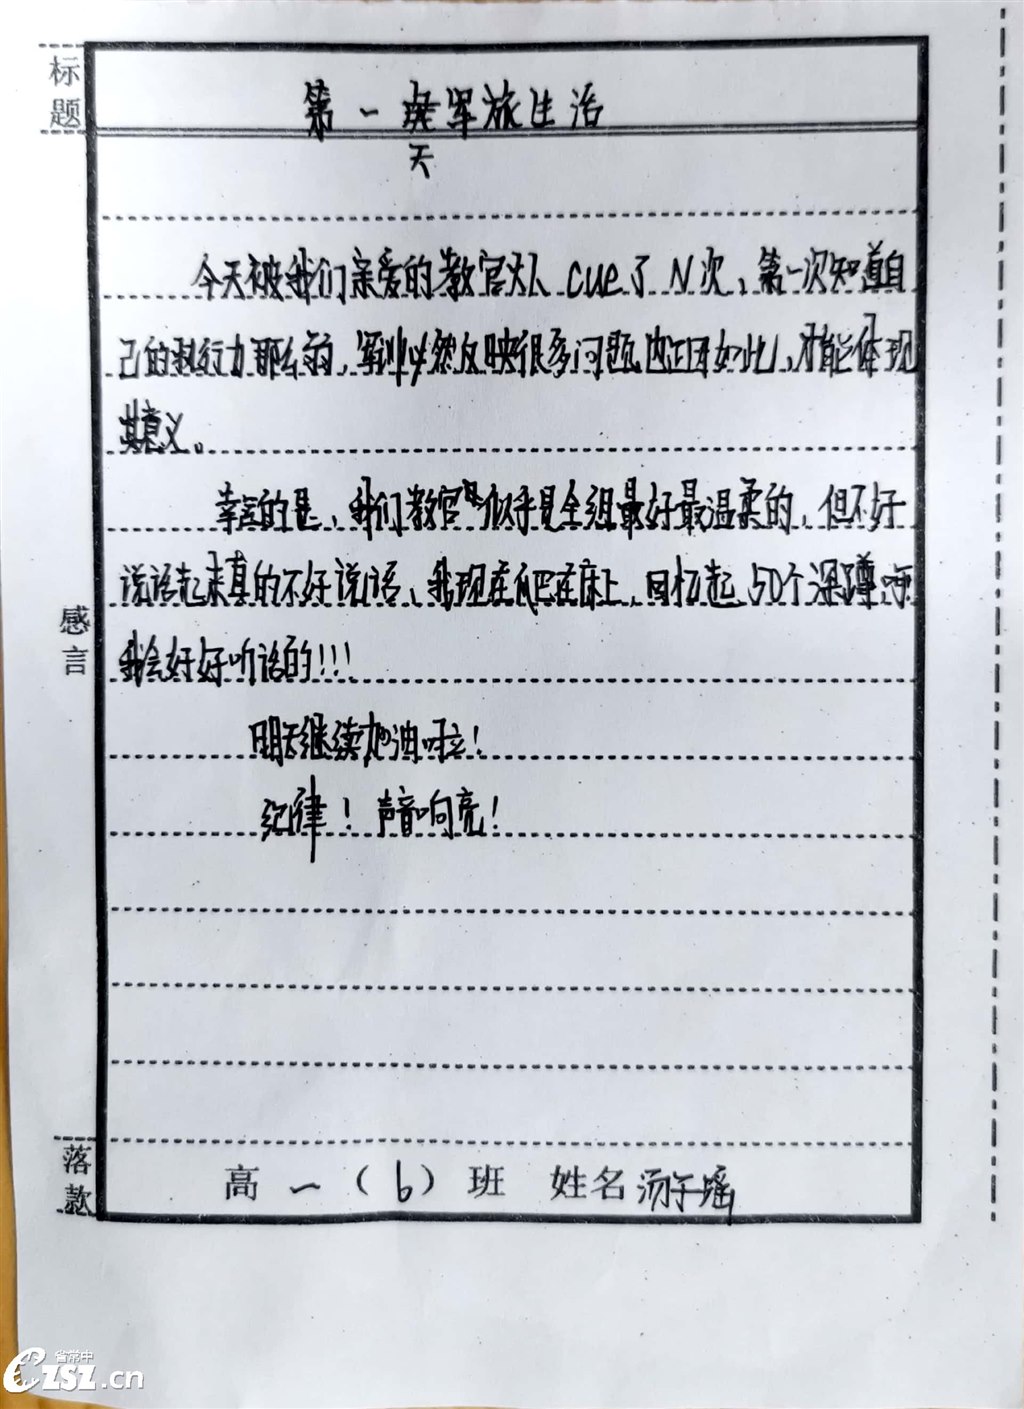 标题
第一天军旅生活
今天被我们亲爱的教官大人cue了N次，第一次知道自
己的执行力那么弱，军训必然反映很多问题，也正因如此，才能体现
其意义。
幸运的是，我们教官似乎是全组最好最温柔的，但不好
说话起来真的不好说话，我现在爬在床上，回忆起50个深蹲，
我会好好听话的!!!
明天继续加油呀!
纪律！声音响亮！
感言
落款
高一（6）班 姓名 汤于瑶
省常中
CZSZ.cn